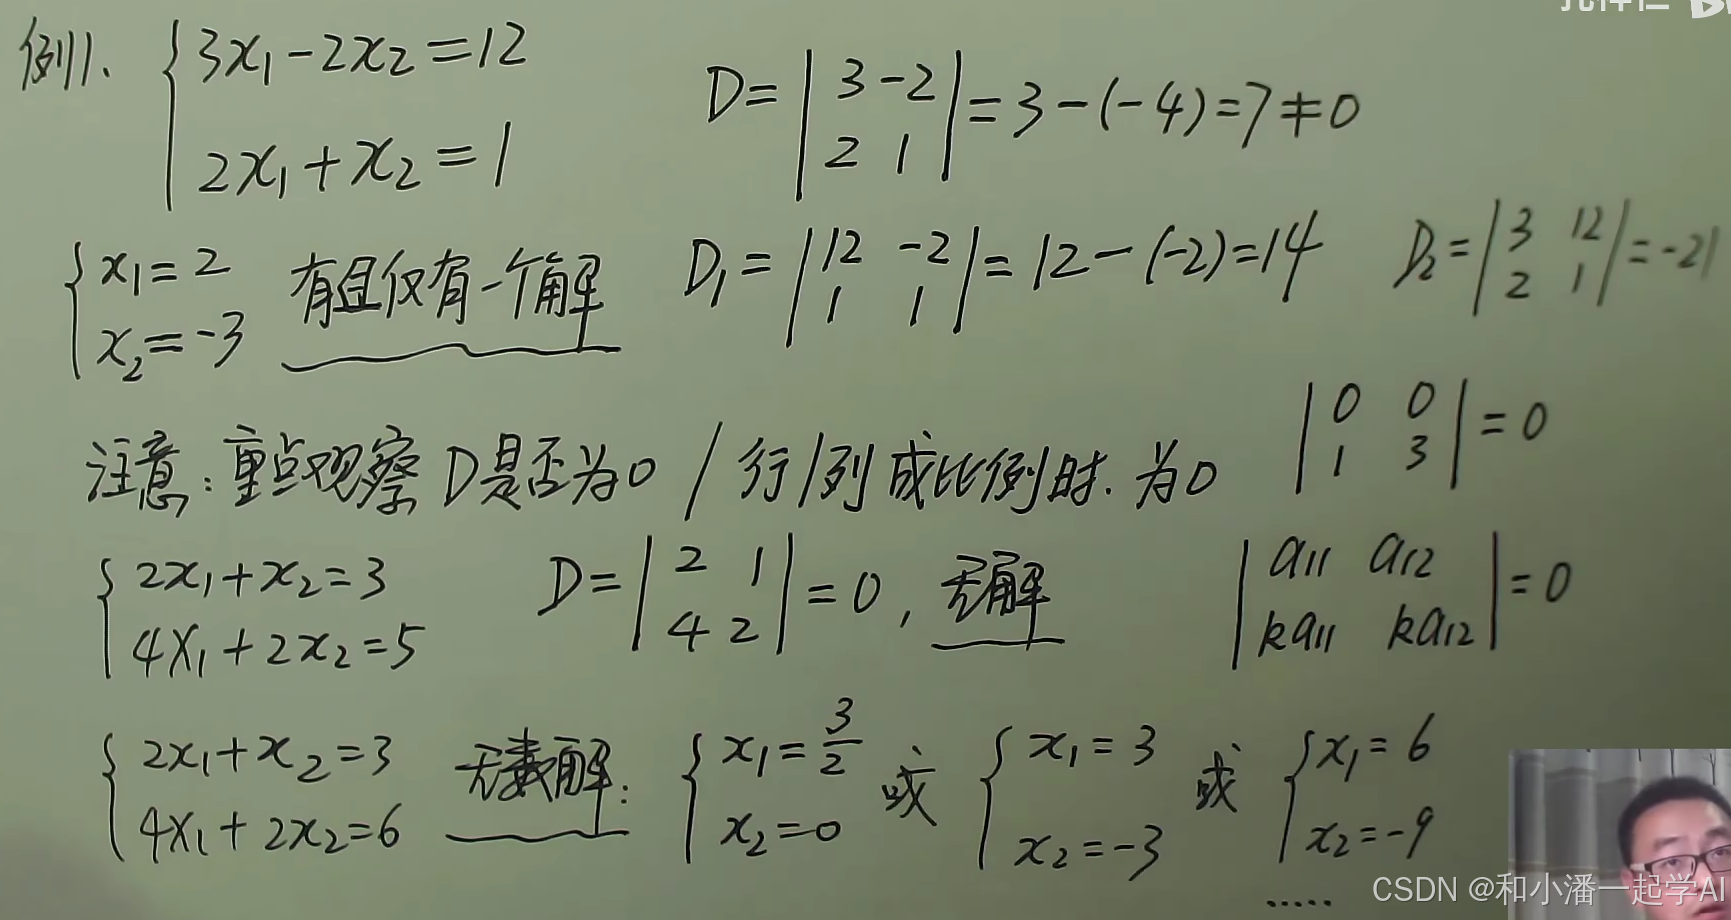 例1、 { 3x₁-2x₂=12
2x₁+x₂=1
D= | 3 -2 ; 2 1 | =3-(-4)=7≠0
{ x₁=2
x₂=-3
有且仅有一个解
D₁= | 12 -2 ; 1 1 | =12-(-2)=14
D₂= | 3 12 ; 2 1 | =-21
注意:重点观察D是否为0 / 行/列成比例时.为0
| 0 0 ; 1 3 | =0
{ 2x₁+x₂=3
4x₁+2x₂=5
D= | 2 1 ; 4 2 | =0, 无解
| a₁₁ a₁₂ ; ka₁₁ ka₁₂ | =0
{ 2x₁+x₂=3
4x₁+2x₂=6
无数解:
{ x₁=3/2
x₂=0
或
{ x₁=3
x₂=-3
或
{ x₁=6
x₂=-9
......
CSDN @和小潘一起学AI